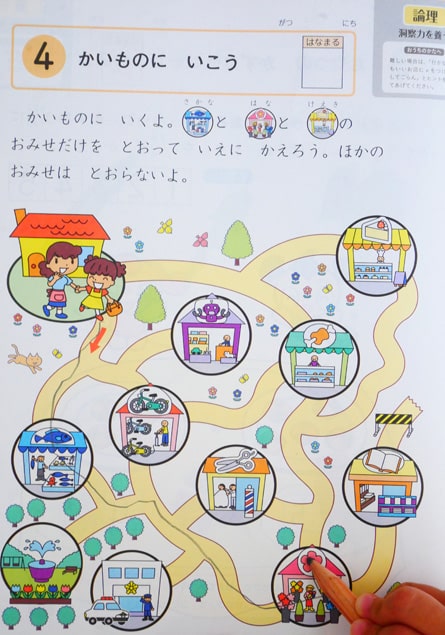 論理
洞察力を養
おうちのかたへ
がつ にち
4 かいものに いこう
はなまる
さかな はな けえき
かいものに いくよ。 と と の
おみせだけを とおって いえに かえろう。ほかの
おみせは とおらないよ。